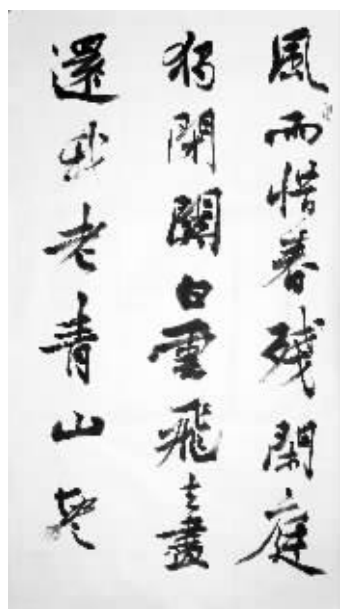 風雨惜春殘閑庭
獨閉關白雲飛去盡
還我老青山